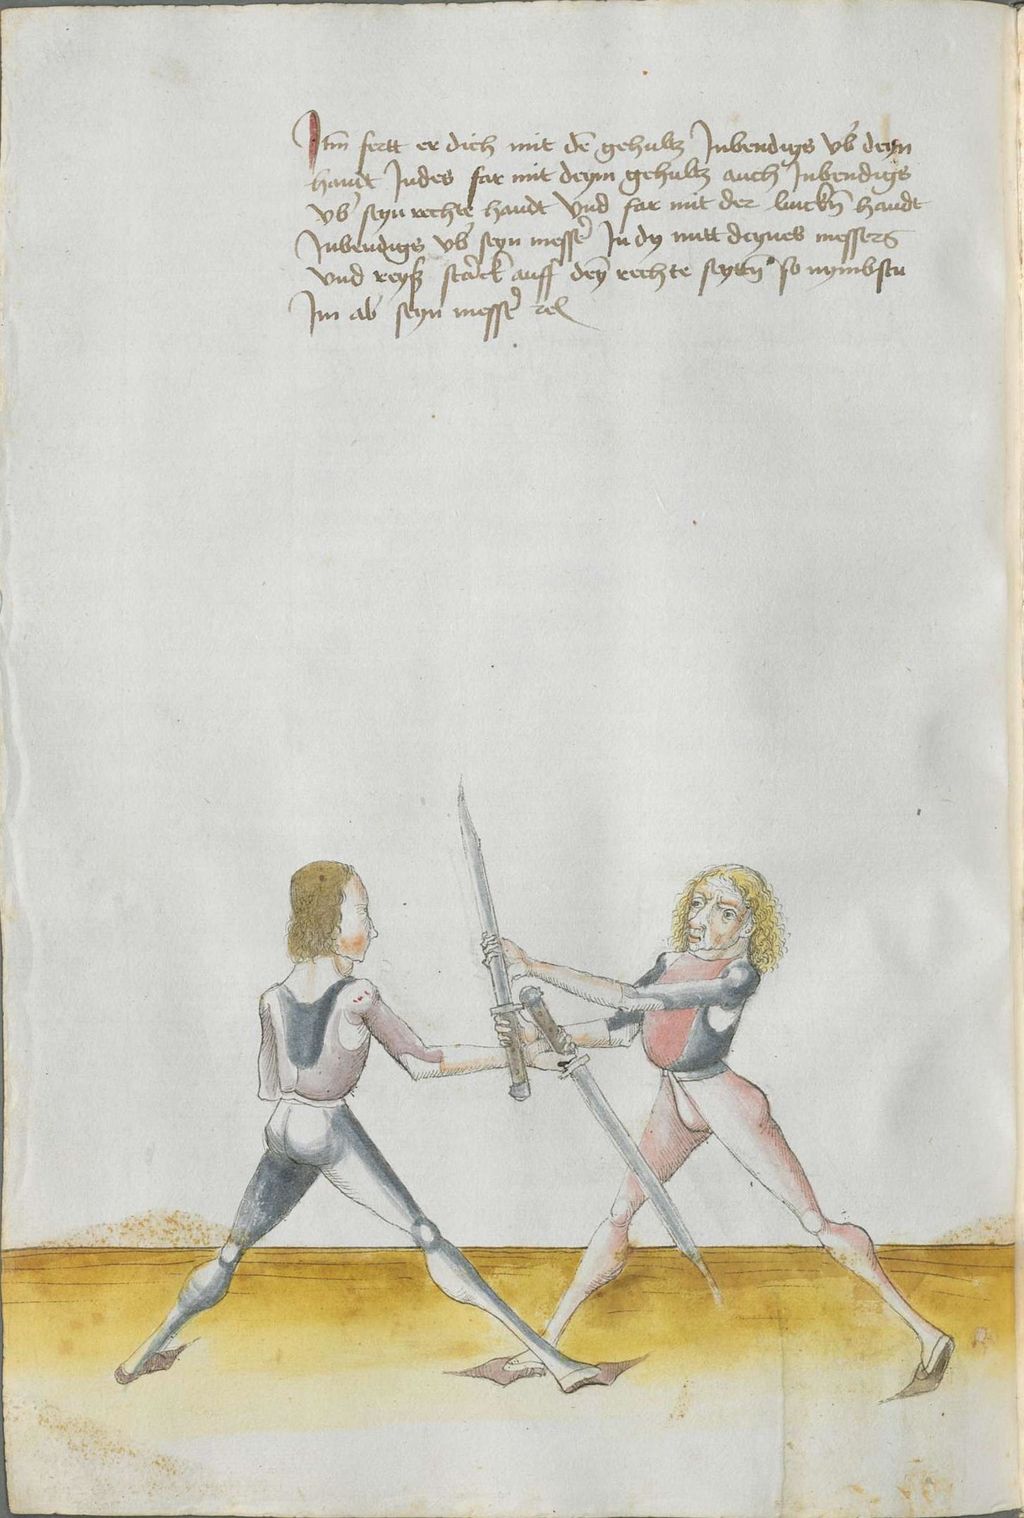 Itm̃ fertt er dich mit dē gehultz Inbendigs vb̾ deyn
handt Indes far mit deym gehultz auch Inbendigs
vb̾ seyn rechte handt Vnd far mit der linckñ handt
Inbendigs vb̾ seyn messe̾ In dy mitt deynes messers
Vnd reyß starck auff deỹ rechte seyttñ so nymbstu
Im ab seyn messe̾ rc